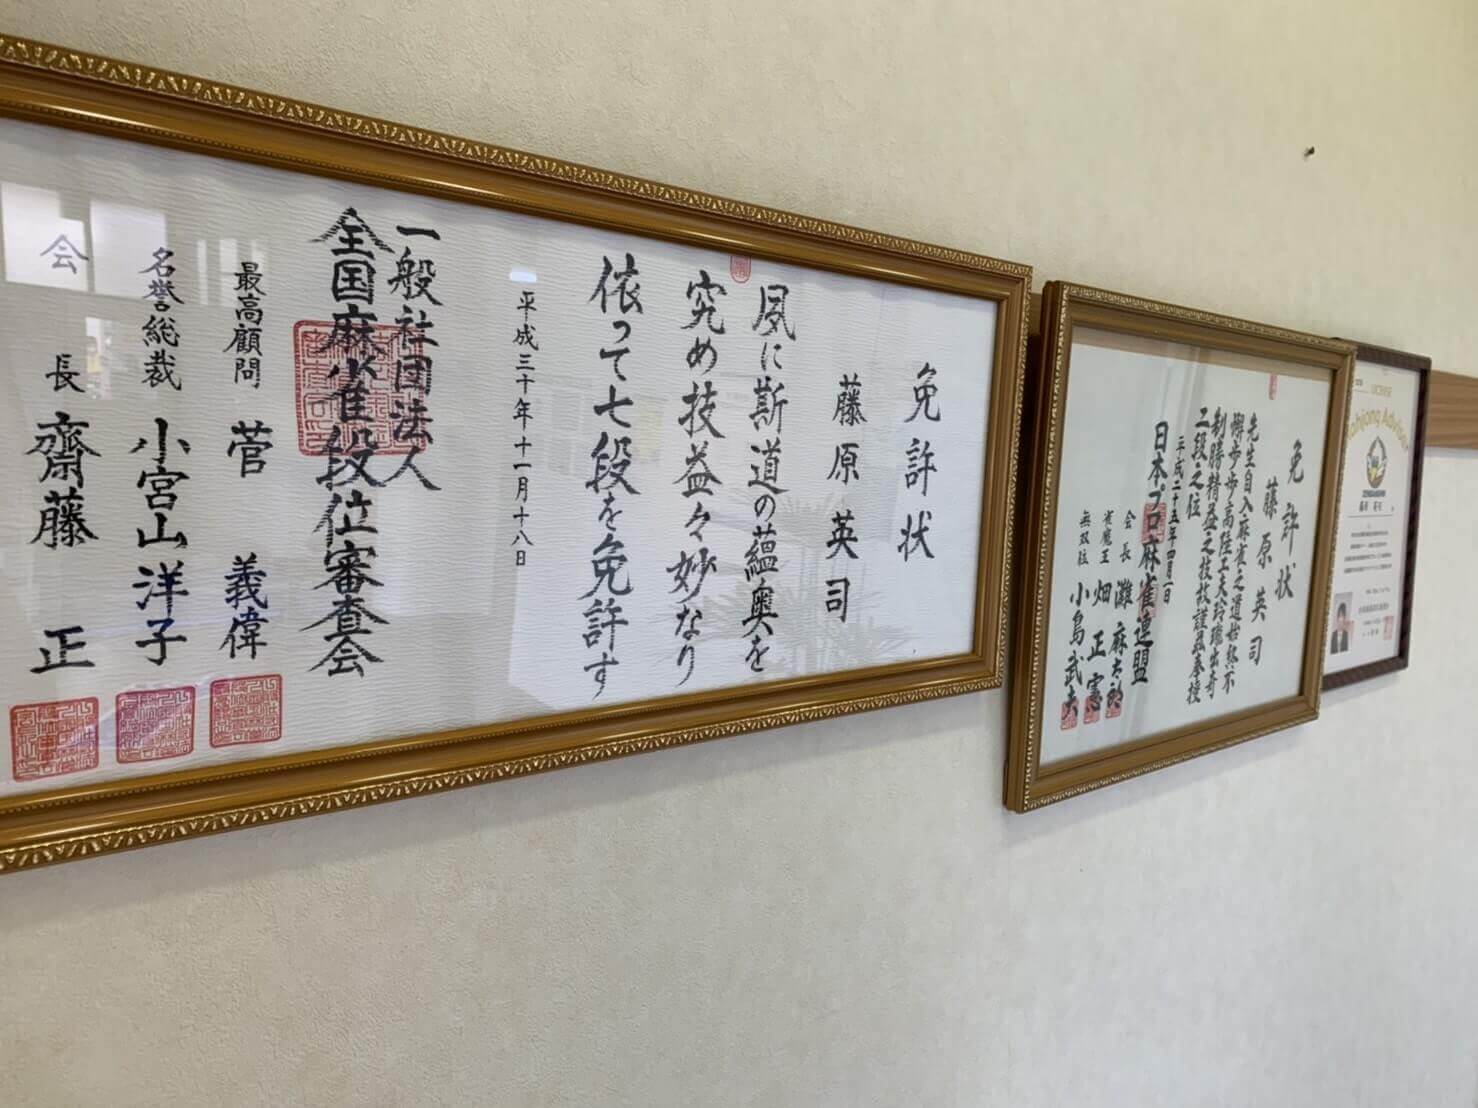 免許状
藤原英司
夙に斯道の蘊奥を
究め技益々妙なり
依って七段を免許す
平成三十年十一月十八日
一般社団法人
全国麻雀段位審査会
最高顧問 菅義偉
名誉総裁 小宮山洋子
会長 齋藤正
免許状
藤原英司
先生自入麻雀之道始終不
懈歩歩高陸工夫玲瓏出奇
制勝精益之技故謹呈奉授
二段之位
平成二十五年四月一日
日本プロ麻雀連盟
会長 灘麻太郎
雀魔王 畑正憲
無双位 小島武夫
LICENSE
Mahjong Advisor